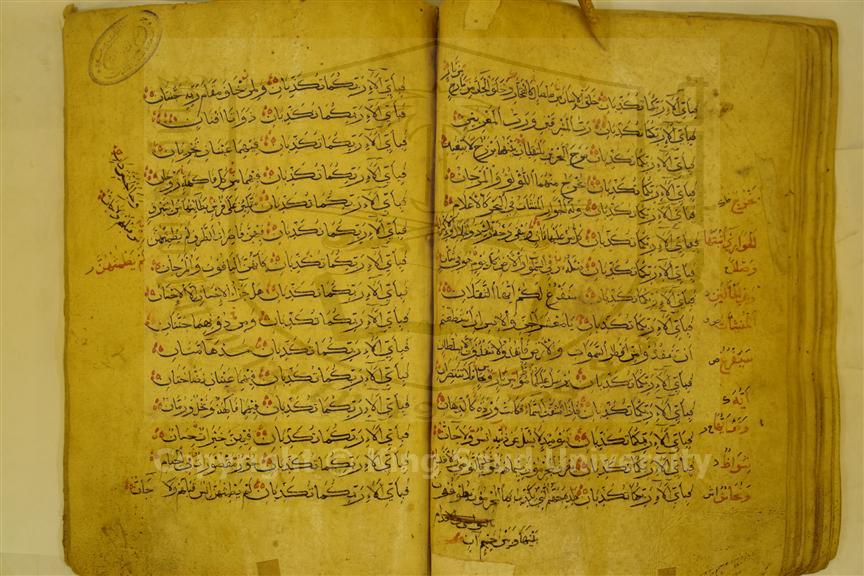 فبأي آلاء ربكما تكذبان خلق الإنسان من صلصال كالفخار وخلق الجان من مارج
من نار
فبأي آلاء ربكما تكذبان رب المشرقين ورب المغربين
فبأي آلاء ربكما تكذبان مرج البحرين يلتقيان بينهما برزخ لا يبغيان
فبأي آلاء ربكما تكذبان يخرج منهما اللؤلؤ والمرجان
فبأي آلاء ربكما تكذبان وله الجوار المنشآت في البحر كالأعلام
فبأي آلاء ربكما تكذبان كل من عليها فان ويبقى وجه ربك ذو الجلال والإكرام
فبأي آلاء ربكما تكذبان يسأله من في السموات والأرض كل يوم هو في شأن
فبأي آلاء ربكما تكذبان سنفرغ لكم أيها الثقلان
فبأي آلاء ربكما تكذبان يا معشر الجن والإنس إن استطعتم
أن تنفذوا من أقطار السموات والأرض فانفذوا لا تنفذون إلا بسلطان
فبأي آلاء ربكما تكذبان يرسل عليكما شواظ من نار ونحاس فلا تنتصران
فبأي آلاء ربكما تكذبان فإذا انشقت السماء فكانت وردة كالدهان
فبأي آلاء ربكما تكذبان فيومئذ لا يسأل عن ذنبه إنس ولا جان
فبأي آلاء ربكما تكذبان يعرف المجرمون
فبأي آلاء ربكما تكذبان هذه جهنم التي يكذب بها المجرمون يطوفون
بينها وبين حميم آن
يخرج
الجوار
المنشآت
سيفرغ
أيه
شواظ
ونحاس
فبأي آلاء ربكما تكذبان ولمن خاف مقام ربه جنتان
فبأي آلاء ربكما تكذبان ذواتا أفنان
فبأي آلاء ربكما تكذبان فيهما عينان تجريان
فبأي آلاء ربكما تكذبان فيهما من كل فاكهة زوجان
فبأي آلاء ربكما تكذبان متكئين على فرش بطائنها من إستبرق
فبأي آلاء ربكما تكذبان فيهن قاصرات الطرف لم يطمثهن
فبأي آلاء ربكما تكذبان كأنهن الياقوت والمرجان
فبأي آلاء ربكما تكذبان هل جزاء الإحسان إلا الإحسان
فبأي آلاء ربكما تكذبان ومن دونهما جنتان
فبأي آلاء ربكما تكذبان مدهامتان
فبأي آلاء ربكما تكذبان فيهما عينان نضاختان
فبأي آلاء ربكما تكذبان فيهما فاكهة ونخل ورمان
فبأي آلاء ربكما تكذبان فيهن خيرات حسان
فبأي آلاء ربكما تكذبان حور مقصورات في الخيام
فبأي آلاء ربكما تكذبان لم يطمثهن إنس قبلهم ولا جان
يطمثهن
Copyright © King Saud University